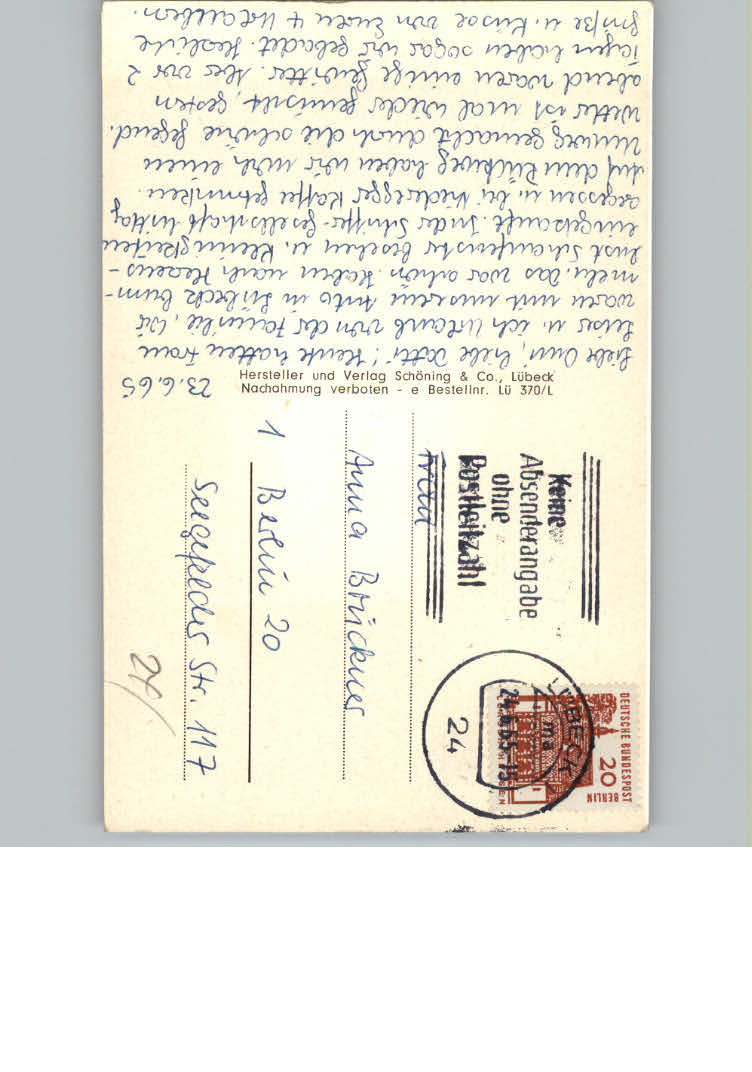 23.6.65
Liebe Omi, liebe Dotti! Heute hatten Frau
Leiser u. ich Urlaub von der Familie, wir
waren mit unserm Auto in Lübeck bum-
meln. Das war schön. Haben nach Herzens-
lust Schaufenster besehen u. Kleinigkeiten
eingekauft. In der Schiffer-Gesellschaft Mittag
gegessen u. bei Niederegger Kaffee getrunken.
Auf dem Rückweg haben wir noch einen
Umweg gemacht durch die schöne Gegend.
Wetter ist mal wieder gemischt, gestern
abend waren einige Gewitter. Aber vor 2
Tagen haben sogar wir gebadet. Herzliche
Grüße u. Küsse von Euren 4 Urlaubern.
Hersteller und Verlag Schöning & Co., Lübeck
Nachahmung verboten - e Bestellnr. Lü 370/L
Keine
Absenderangabe
ohne
Postleitzahl
LÜBECK
24.6.65-15
24
DEUTSCHE BUNDESPOST
BERLIN
20
Frau
Anna Brückner
1 Berlin 20
Seegefelder Str. 117